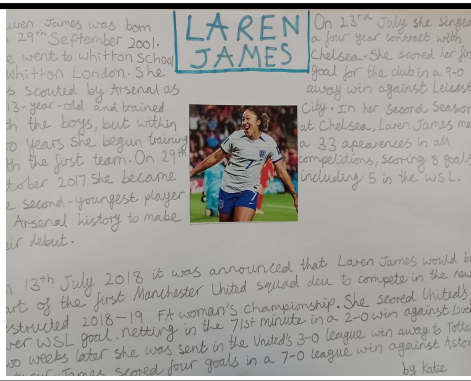 LAREN
JAMES
Lauren James was born
29th September 2001.
went to Whitton School
Whitton London. She
s scouted by Arsenal as
13-year-old and trained
the boys, but within
years she begun training
the first team. On 29th
October 2017 she became
second-youngest player
Arsenal history to make
debut.
On 23rd July she signed
a four year contract with
Chelsea. She scored her first
goal for the club in a 9-0
away win against Leicester
City. In her second season
at Chelsea, Laren James made
a 33 apearences in all
competitions, scoring 8 goals
including 5 in the WSL.
13th July 2018 it was announced that Laren James would be
art of the first Manchester United squad deu to compete in the new
structed 2018-19 FA woman's championship. She scored United's
ver WSL goal, netting in the 71st minute in a 2-0 win against
two weeks later she was sent in the United's 3-0 league win away to
James scored four goals in a 7-0 league win against Aston
by Katie
7